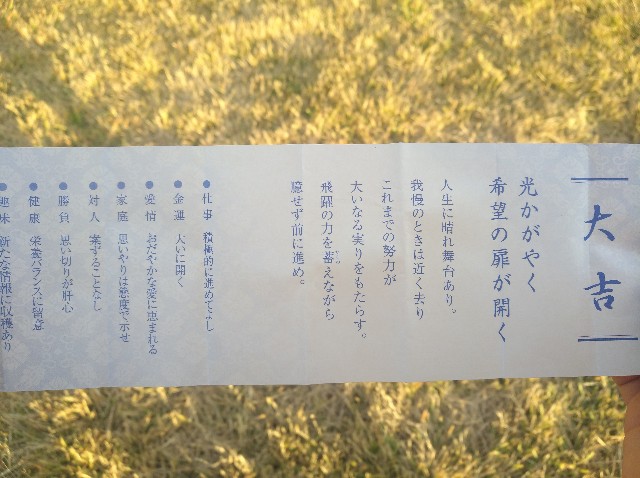 大吉
光かがやく
希望の扉が開く
人生に晴れ舞台あり。
我慢のときは近く去り
これまでの努力が
大いなる実りをもたらす。
飛躍の力を蓄えながら
臆せず前に進め。
●仕事 積極的に進めてよし
●金運 大いに開く
●愛情 おだやかな愛に恵まれる
●家庭 思いやりは態度で示せ
●対人 案ずることなし
●勝負 思い切りが肝心
●健康 栄養バランスに留意
●趣味 新たな情報に収穫あり